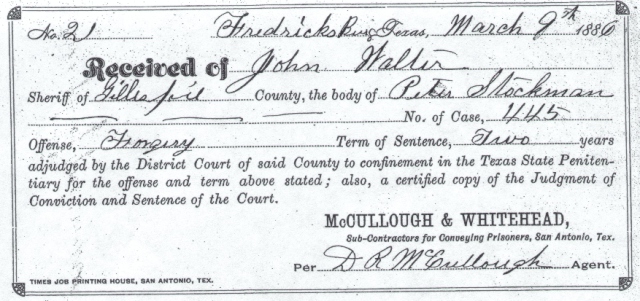 No. 21 Fredricksburg Texas, March 9th 1886
Received of John Walter
Sheriff of Gillespie County, the body of Peter Stockman
No. of Case, 445
Offense, Forgery Term of Sentence, Two years
adjudged by the District Court of said County to confinement in the Texas State Peniten-
tiary for the offense and term above stated; also, a certified copy of the Judgment of
Conviction and Sentence of the Court.
McCULLOUGH & WHITEHEAD,
Sub-Contractors for Conveying Prisoners, San Antonio, Tex.
Per D R McCullough Agent.
TIMES JOB PRINTING HOUSE, SAN ANTONIO, TEX.